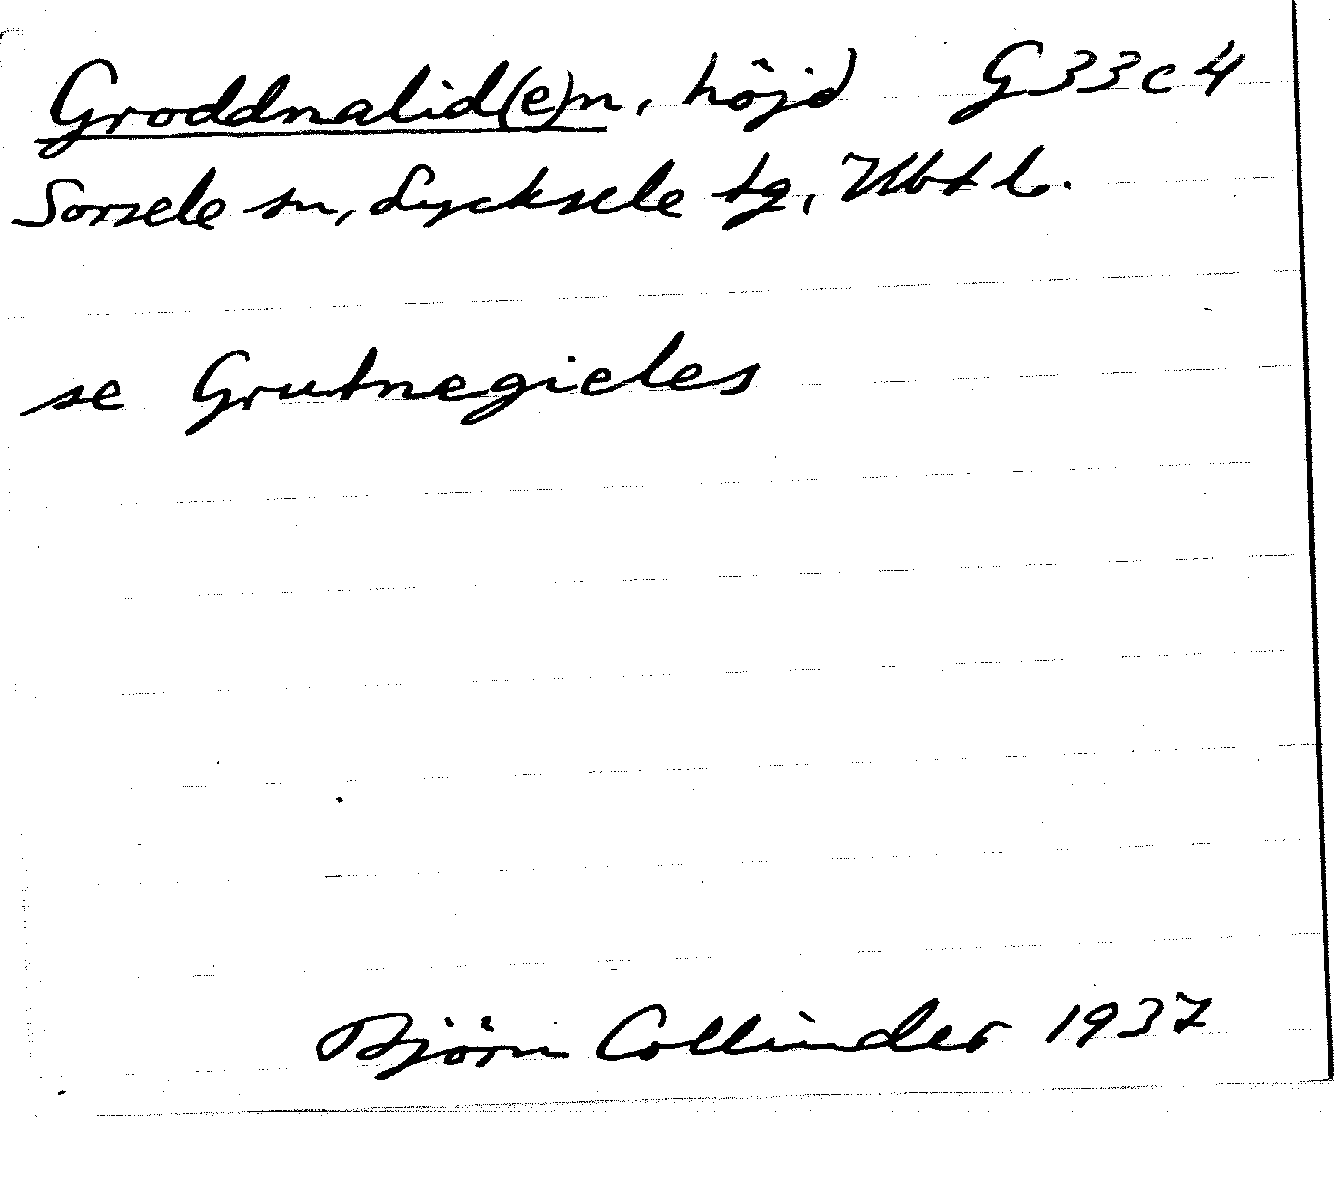 Groddnalid(e)n, höjd G33c4
Sorsele sn, Lycksele tg, Vbtl.
se Grutnegieles
Björn Collinder 1937